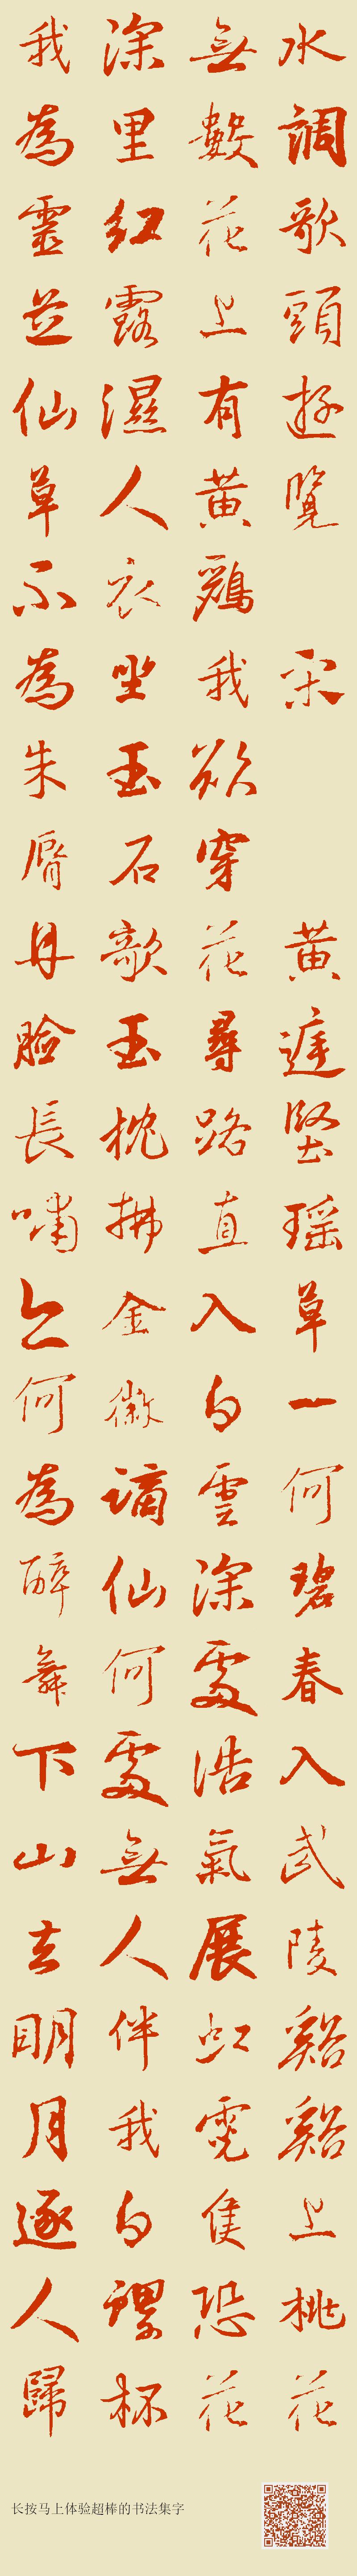 水調歌頭遊覽 宋 黄庭堅瑶草一何碧春入武陵谿谿上桃花
無數花上有黄鸝我欲穿花尋路直入白雲深處浩氣展虹霓隻恐花
深里紅露濕人衣坐玉石欹玉枕拂金徽謫仙何處無人伴我白螺杯
我為靈芝仙草不為朱脣丹臉長嘯亦何為醉舞下山去明月逐人歸
长按马上体验超棒的书法集字